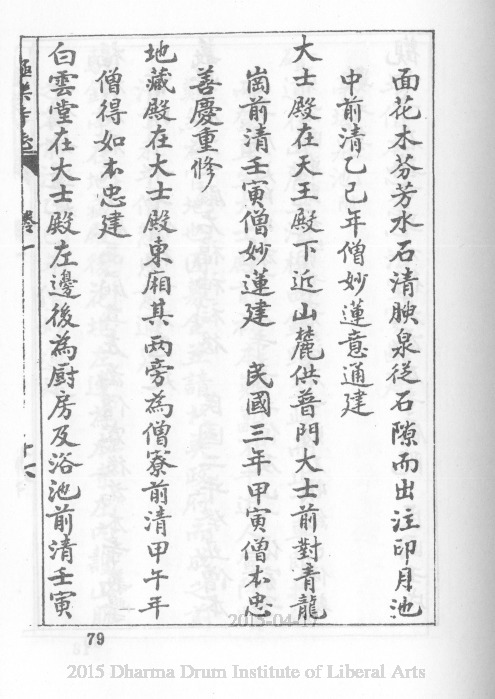 面花木芬芳水石清腴泉從石隙而出注印月池
中前清乙巳年僧妙蓮意通建
大士殿在天王殿下近山麓供普門大士前對青龍
崗前清壬寅僧妙蓮建　民國三年甲寅僧本忠
善慶重修
地藏殿在大士殿東廂其兩旁為僧寮前清甲午年
僧得如本忠建
白雲堂在大士殿左邊後為厨房及浴池前清壬寅
極樂寺志 卷一 十六
79
2015-04-17
2015 Dharma Drum Institute of Liberal Arts